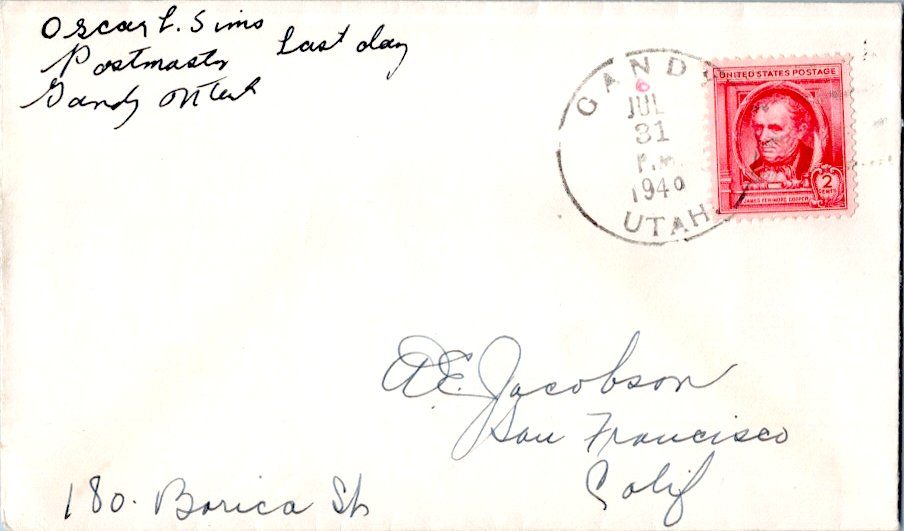 Oscar L. Sims
Postmaster Last day
Gandy Utah
GANDY
JUL
31
P.M.
1940
UTAH.
UNITED STATES POSTAGE
2
CENTS
JAMES FENIMORE COOPER
A.E. Jacobson
San Francisco
Calif
180. Borica St